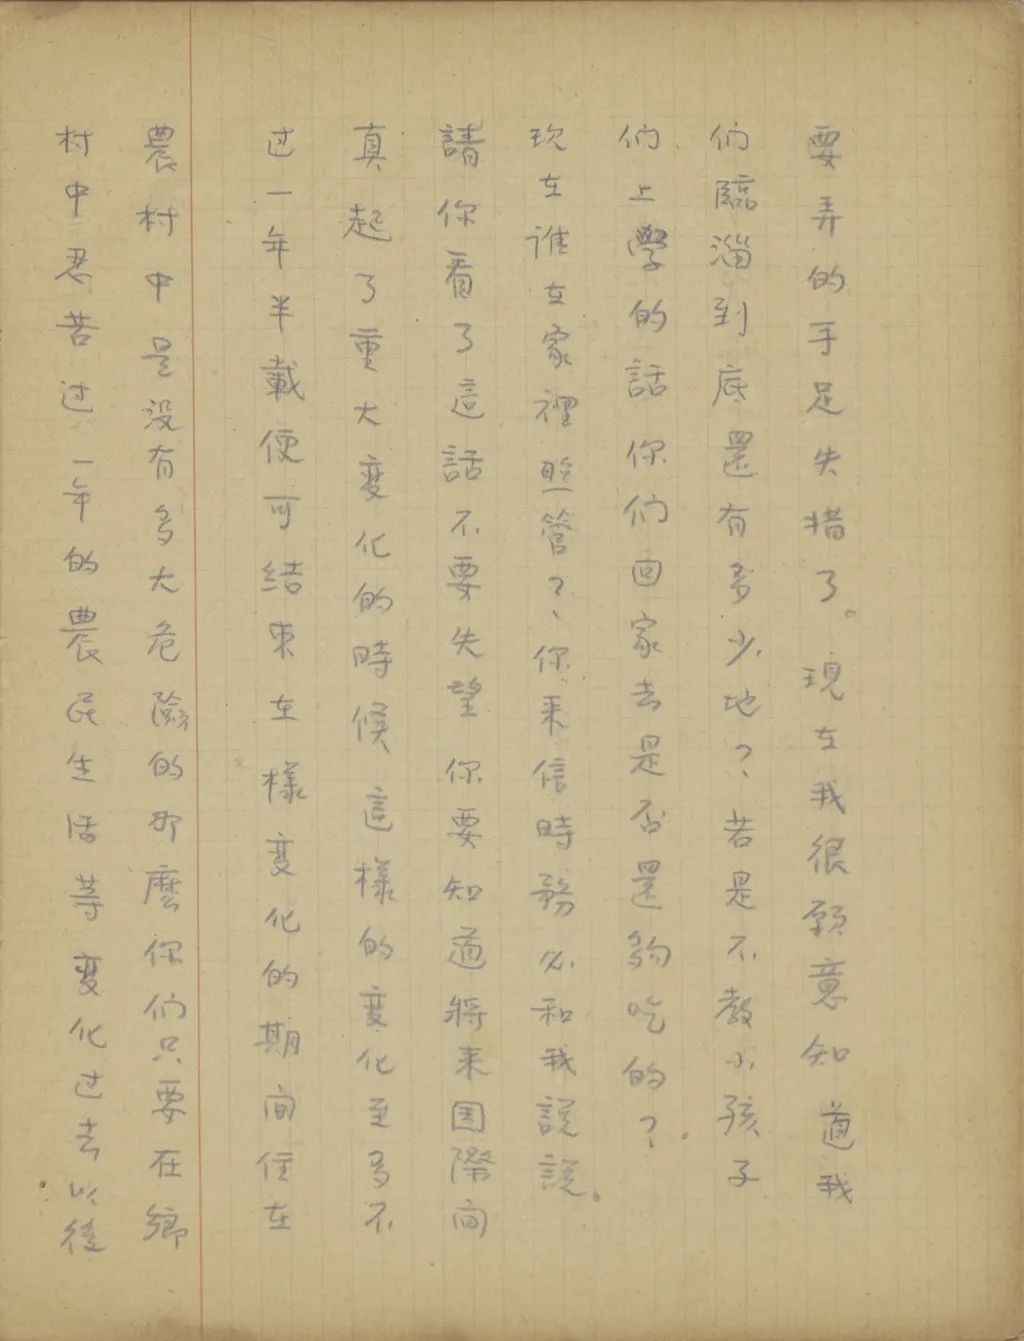 要弄的手足失措了。現在我很願意知道我
们臨淄到底還有多少地？若是不教小孩子
们上學的話你们回家去是否還夠吃的？
现在谁在家裡照管？你来信時務必和我說說。
請你看了這話不要失望你要知道將来国際间
真起了重大变化的時候這樣的变化至多不
过一年半載便可结束在樣变化的期间住在
農村中是没有多大危險的那麼你们只要在鄉
村中忍苦过一年的農民生活等变化过去以後